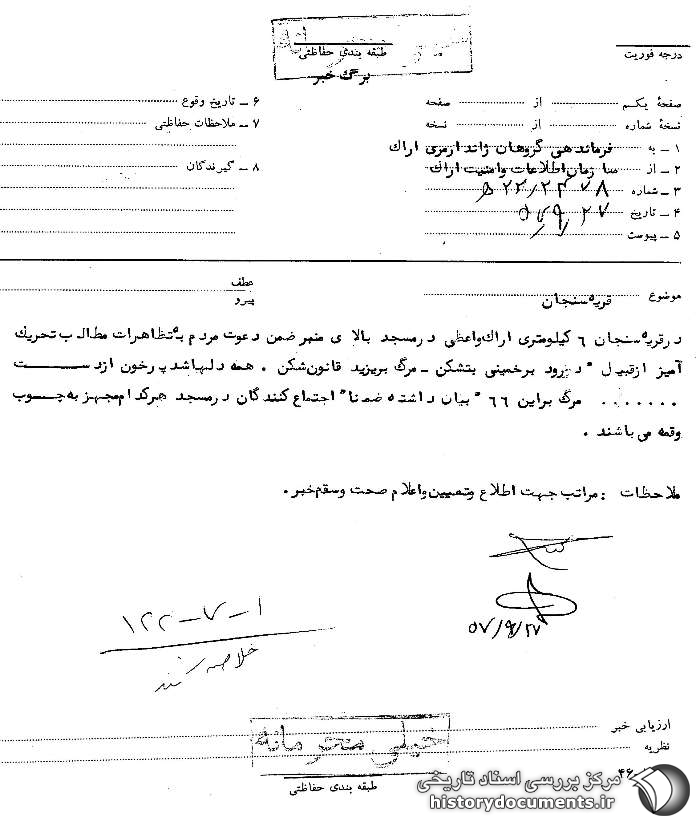 خیلی محرمانه
طبقه بندی حفاظتی
برگ خبر
درجه فوریت
صفحهٔ یکم از صفحه
نسخهٔ شماره از نسخه
۱ - به فرماندهی گروهان ژاندارمری اراک
۲ - از سازمان اطلاعات و امنیت اراک
۳ - شماره
۴ - تاریخ ۵۷/۹/۲۷
۵ - پیوست
۶ - تاریخ وقوع
۷ - ملاحظات حفاظتی
۸ - گیرندگان
موضوع قریه سنجان
عطف
پیرو
در قریه سنجان ۶ کیلومتری اراک واعظی در مسجد بالای منبر ضمن دعوت مردم به تظاهرات مطالب تحریک
آمیز از قبیل " درود بر خمینی بتشکن - مرگ بر یزید قانون شکن . همه دلها باشد پر خون از دست
....... مرگ بر این ۶۶ " بیان داشته ضمنا" اجتماع کنندگان در مسجد هر کدام مجهز به چوب
وقمه می باشند .
ملاحظات : مراتب جهت اطلاع و تعیین و اعلام صحت و سقم خبر .
۵۷/۹/۲۷
۱۲۲-۷-۱
خلاصه کنند
ارزیابی خبر
نظریه
خیلی محرمانه
طبقه بندی حفاظتی
۴۶
مرکز بررسی اسناد تاریخی
historydocuments.ir